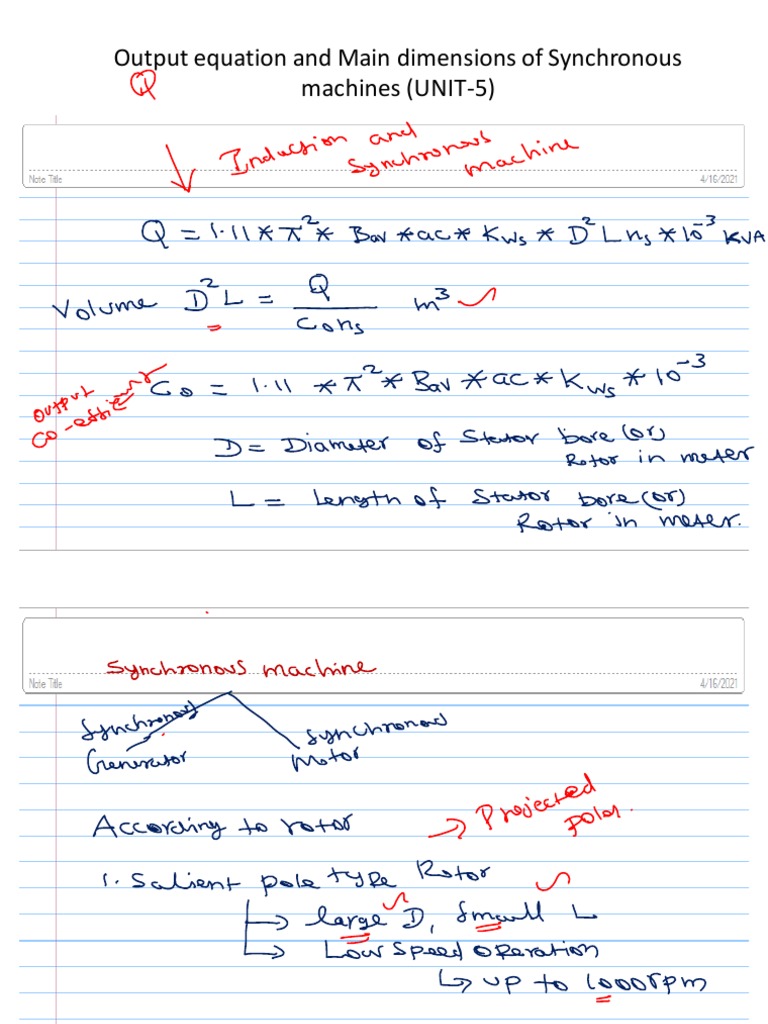 Output equation and Main dimensions of Synchronous
machines (UNIT-5)
Q
Induction and
Synchronous
machine
Note Title
4/16/2021
Q = 1.11 * π² * Bav * ac * Kws * D² L ns * 10⁻³ KVA
Volume D²L = Q / Co ns m³
Output
co-efficient
Co = 1.11 * π² * Bav * ac * Kws * 10⁻³
D = Diameter of Stator bore (or)
Rotor in meter
L = Length of Stator bore (or)
Rotor in meter.
Synchronous machine
Note Title
4/16/2021
Synchronous
Generator
Synchronous
Motor
According to rotor
→ Projected
poles.
1. Salient pole type Rotor
→ large D, Small L
→ Low Speed operation
↳ up to 1000rpm